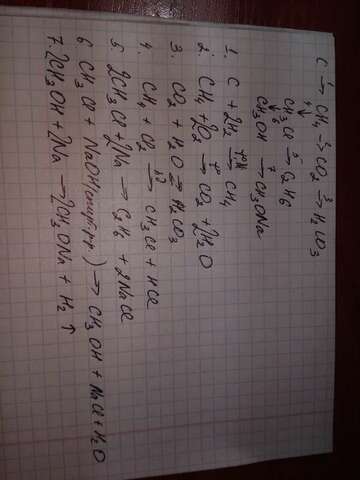 C →¹ CH₄ →² CO₂ →³ H₂CO₃
4↓
CH₃Cl →⁵ C₂H₆
6↓
CH₃OH →⁷ CH₃ONa
1. C + 2H₂ → CH₄
2. CH₄ + 2O₂ →t° CO₂ + 2H₂O
3. CO₂ + H₂O ⇄ H₂CO₃
4. CH₄ + Cl₂ → CH₃Cl + HCl
5. 2CH₃Cl + 2Na → C₂H₆ + 2NaCl
6 CH₃Cl + NaOH → CH₃OH + NaCl + H₂O
7. 2CH₃OH + 2Na → 2CH₃ONa + H₂↑